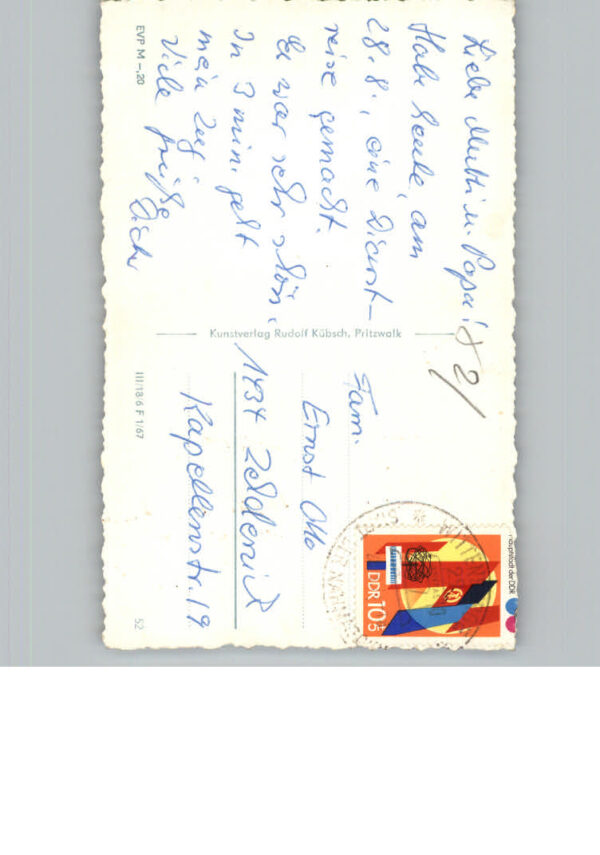 Liebe Mutti u. Papa!
Habe heute, am
28.8., eine Dienst-
reise gemacht.
Es war sehr schön.
In 3 min. geht
mein Zug.
Viele Grüße
EVP M -,20
Kunstverlag Rudolf Kübsch, Pritzwalk
III/18/6 F 1/67
52
Fam.
Ernst Otto
1434 Zehdenick
Kapellenstr. 19
Hauptstadt der DDR
DDR 10+5